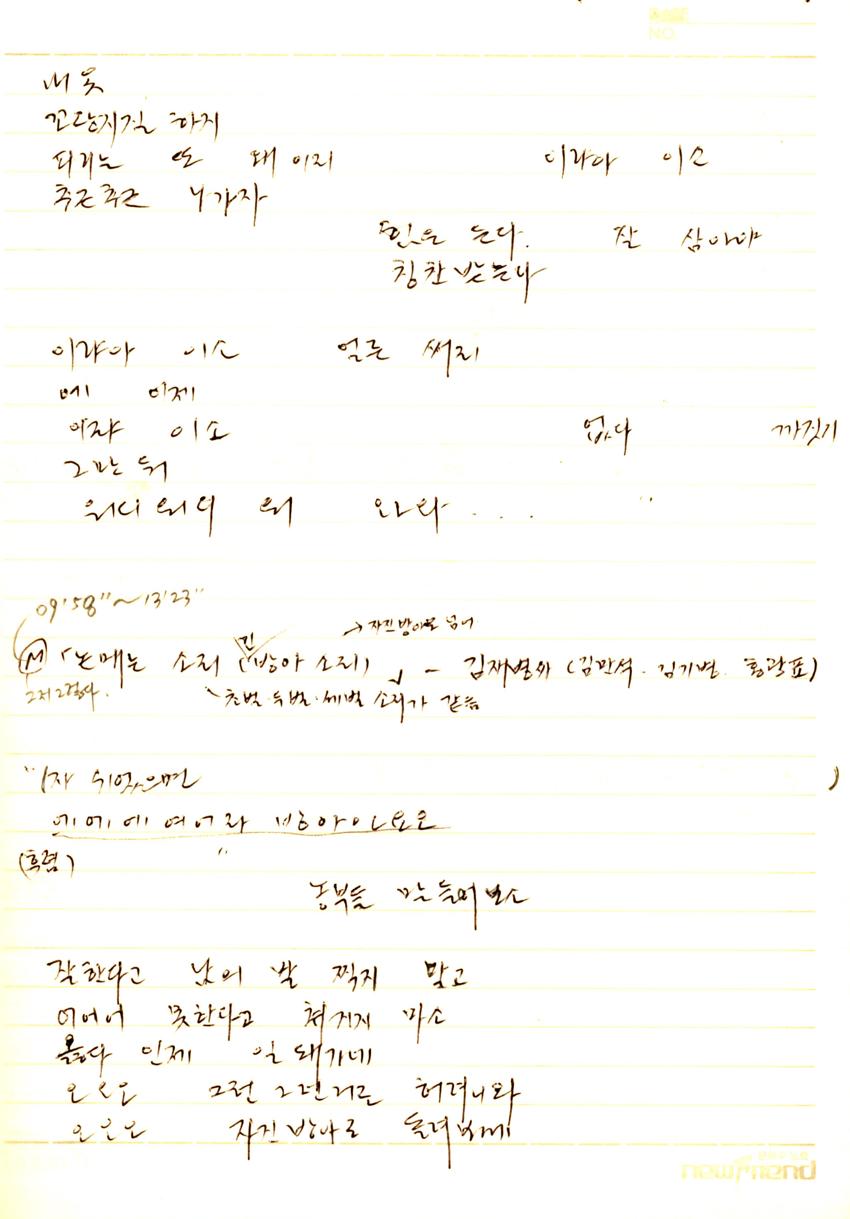 NO.
내 옷
꼬당지질 하지
피기는 또 돼 이리 이랴아 이소
추근추근 나가자
힌은 는다. 잘 삼아야
칭찬 받는다
이랴아 이소 얼른 써리
에 이제
이랴 이소 없다 까짓거
그만 둬
워디 워디 워 와 와 . . . . "
09'58"~13'23"
→ 자진방아로 넘어
긴
Ⓜ 「논매는 소리 (방아 소리)」 - 김재변외 (김만석. 김기변. 황관표)
그저그렇다. 초벌·두벌·세벌 소리가 같음
"(자 쉬었으면
에에에 여어라 방아 요오
(후렴) "
농부들 말 들어 보소
잘한다고 남의 발 찍지 말고
어어어 못한다고 쳐지지 마소
옳다 인제 일 돼가네
오오오 그전 그런거른 허려니와
오오오 자진 방아로 돌려보세
newfriend